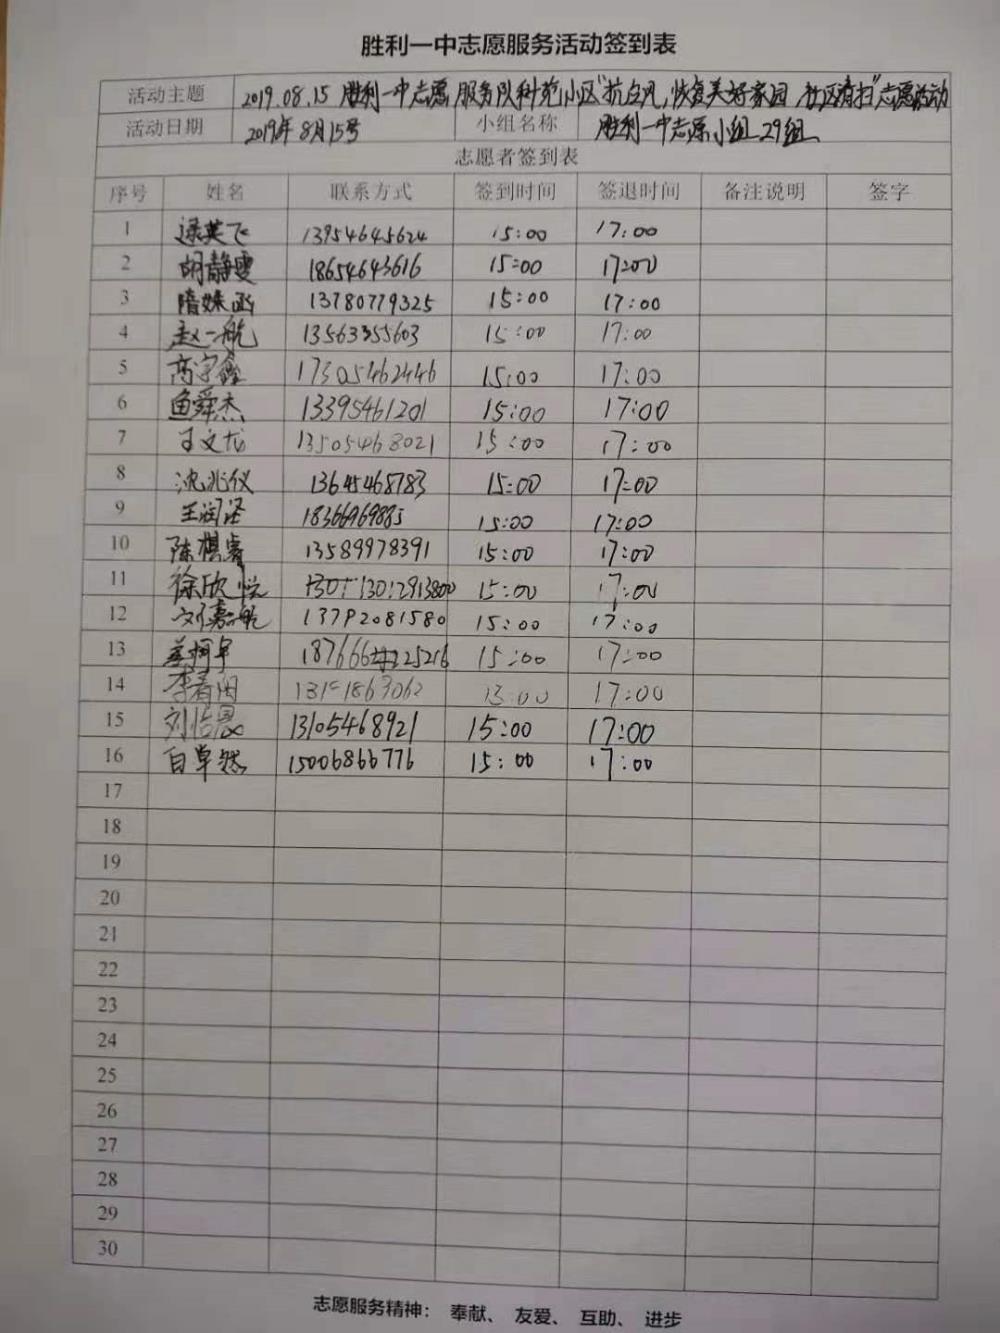 胜利一中志愿服务活动签到表
活动主题 2019.08.15 胜利一中志愿服务队科苑小区"抗台风,恢复美好家园,社区清扫"志愿活动
活动日期 2019年8月15号 小组名称 胜利一中志愿小组29组
志愿者签到表
序号 姓名 联系方式 签到时间 签退时间 备注说明 签字
1 逯英飞 13954645624 15:00 17:00
2 胡静雯 18654643616 15:00 17:00
3 隋姝函 13780779325 15:00 17:00
4 赵一航 13563355603 15:00 17:00
5 高宇鑫 17305462446 15:00 17:00
6 鱼舜杰 13395461201 15:00 17:00
7 王文龙 13505468021 15:00 17:00
8 沈兆仪 13645468783 15:00 17:00
9 王润泽 18366969885 15:00 17:00
10 陈棋睿 13589978391 15:00 17:00
11 徐欣悦 13012913800 15:00 17:00
12 刘嘉航 13792081580 15:00 17:00
13 187666 25216 15:00 17:00
14 15:00 17:00
15 刘怡晨 13105468921 15:00 17:00
16 白卓然 15006866776 15:00 17:00
17
18
19
20
21
22
23
24
25
26
27
28
29
30
志愿服务精神: 奉献、 友爱、 互助、 进步